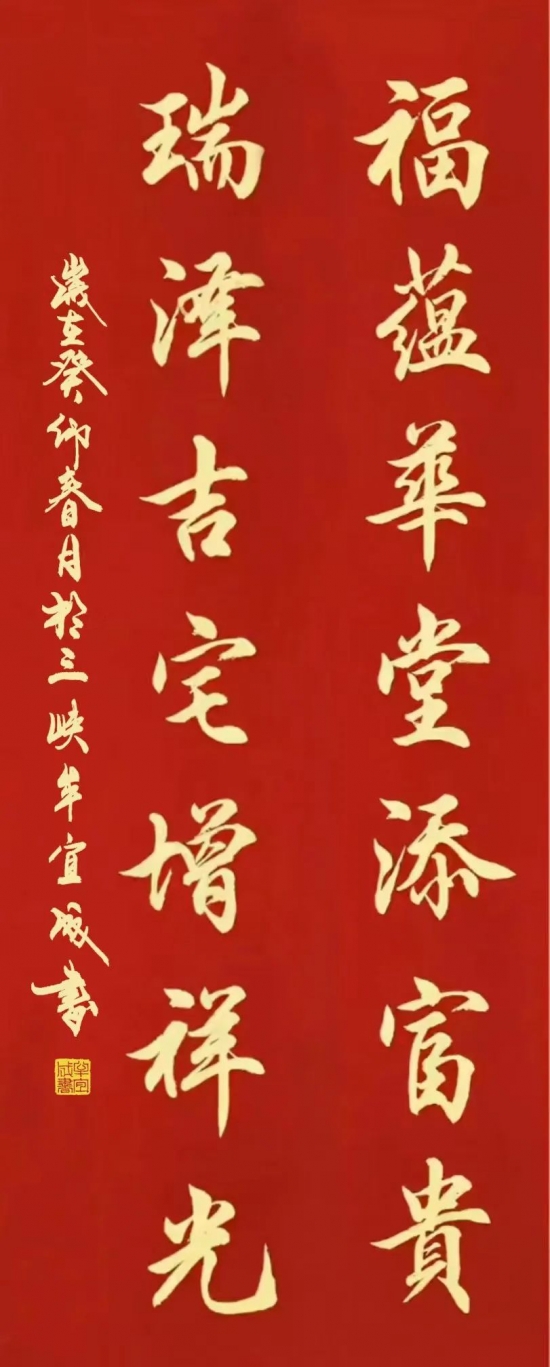 福蕴華堂添富貴
瑞泽吉宅增祥光
歲在癸卯春月於三峡牟宜成書
牟宜成書